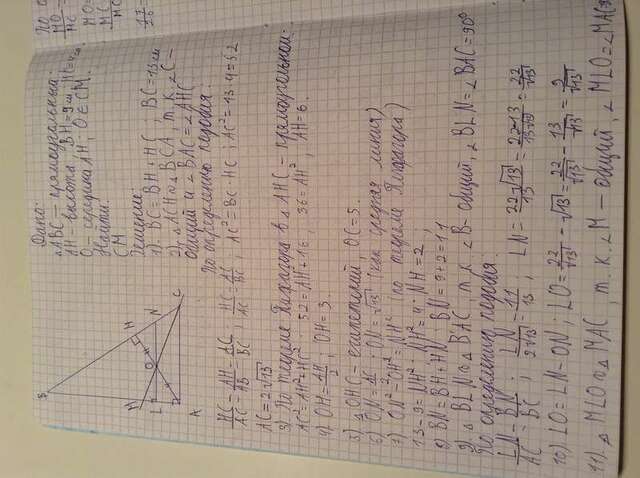 Дано:
△ABC – прямоугольный
AH – высота, BH = 9 см, HC = 4 см
O – середина AH, O ∈ CM.
Найти:
CM
Решение:
1). BC = BH + HC, BC = 13 см
2) △ACH ∾ △BCA, т.к. ∠C –
общий и ∠BAC = ∠AHC
По определению подобия
HC/AC = AH/AB = AC/BC; HC/AC = AC/BC; AC² = BC·HC; AC² = 13·4 = 52
AC = 2√13
3) По теореме Пифагора в △AHC – прямоугольной:
AC² = AH² + HC²; 52 = AH² + 16; 36 = AH²; AH = 6.
4) OH = AH/2; OH = 3
5) △OHC – египетский, OC = 5.
6) ON = AC/2; ON = √13 (как средняя линия)
7) ON² - OH² = NH² (по теореме Пифагора)
13 - 9 = NH²; NH² = 4; NH = 2
8) BN = BH + HN, BN = 9 + 2 = 11
9) △BLN ∾ △BAC, т.к. ∠B – общий, ∠BLN = ∠BAC = 90°
По определению подобия
LN/AC = BN/BC; LN/2√13 = 11/13; LN = 22√13/13 = 22·13/13√13 = 22/√13
10) LO = LN - ON; LO = 22/√13 - √13 = 22/√13 - 13/√13 = 9/√13
11) △MLO ∾ △MAC, т.к. ∠M – общий, ∠MLO = ∠MAC
B
M
H
L
O
N
A
C